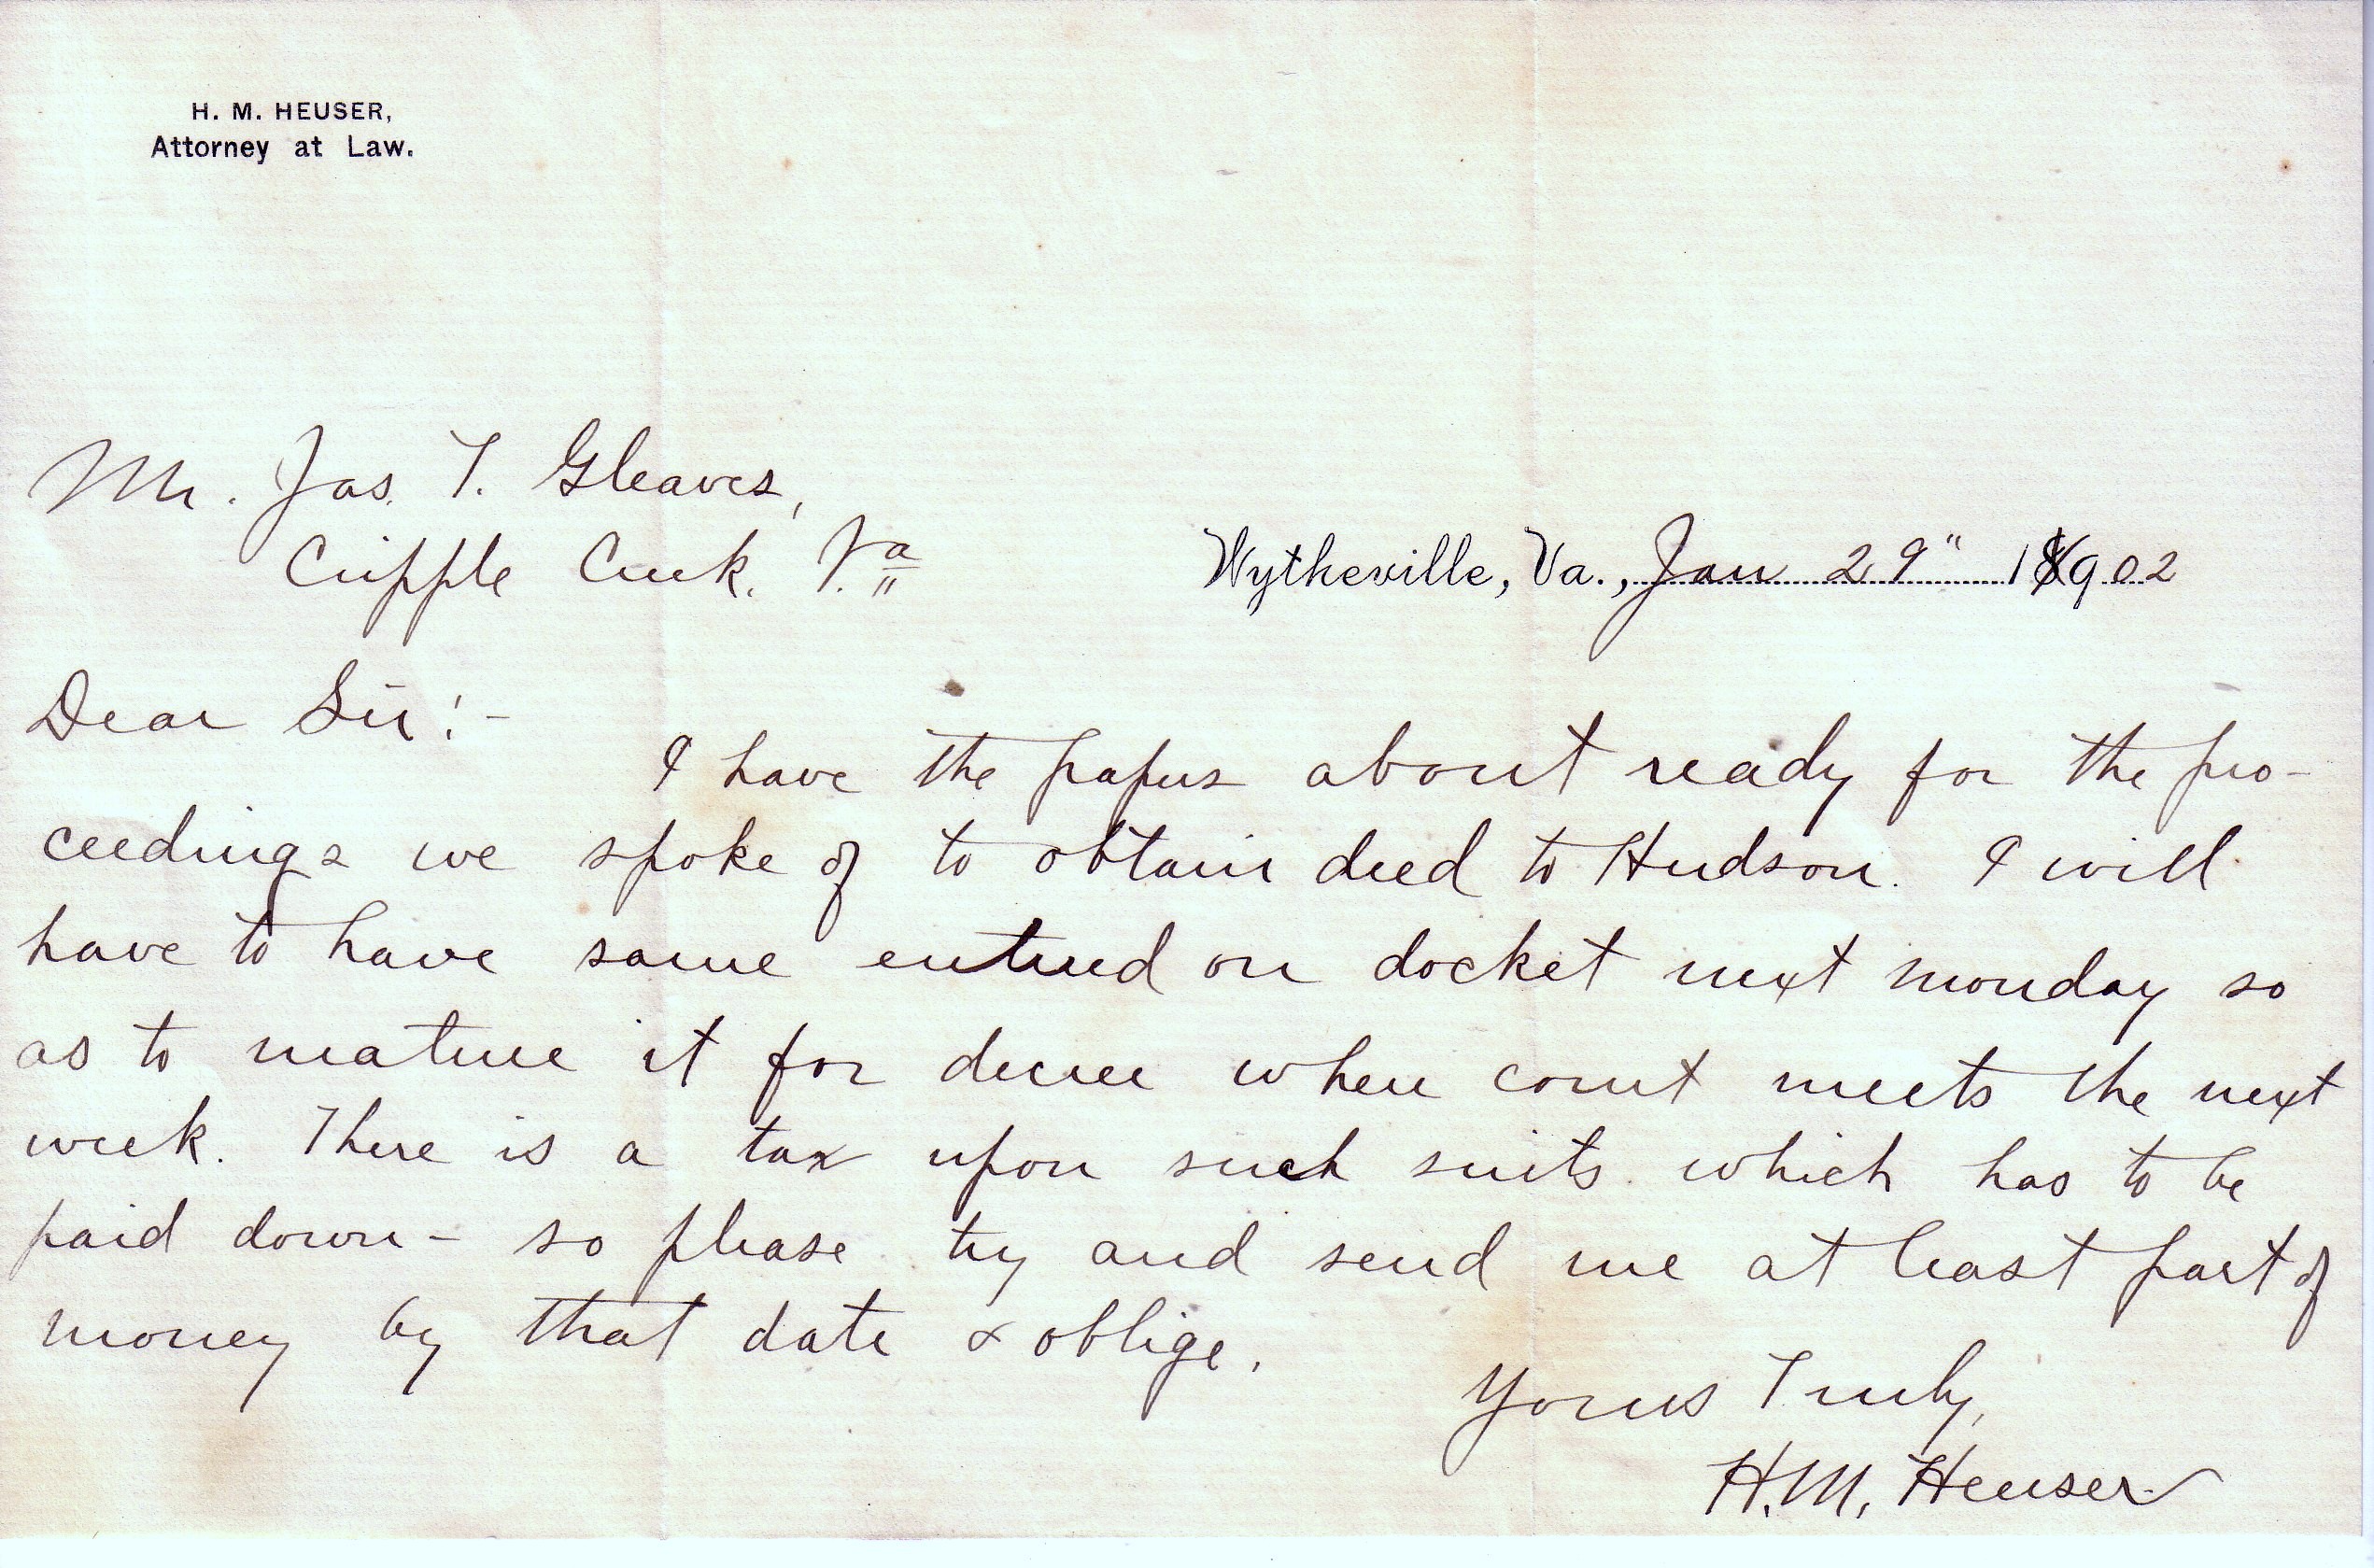 H. M. HEUSER,
Attorney at Law.
Mr. Jas. T. Gleaves,
Cripple Creek. Va
Wytheville, Va., Jan 29" 1902
Dear Sir:-
I have the papers about ready for the pro-
ceedings we spoke of to obtain deed to Hudson. I will
have to have same entered on docket next monday so
as to mature it for decree when court meets the next
week. There is a tax upon such suits which has to be
paid down - so please try and send me at least part of
money by that date & oblige.
Yours Truly,
H. M. Heuser